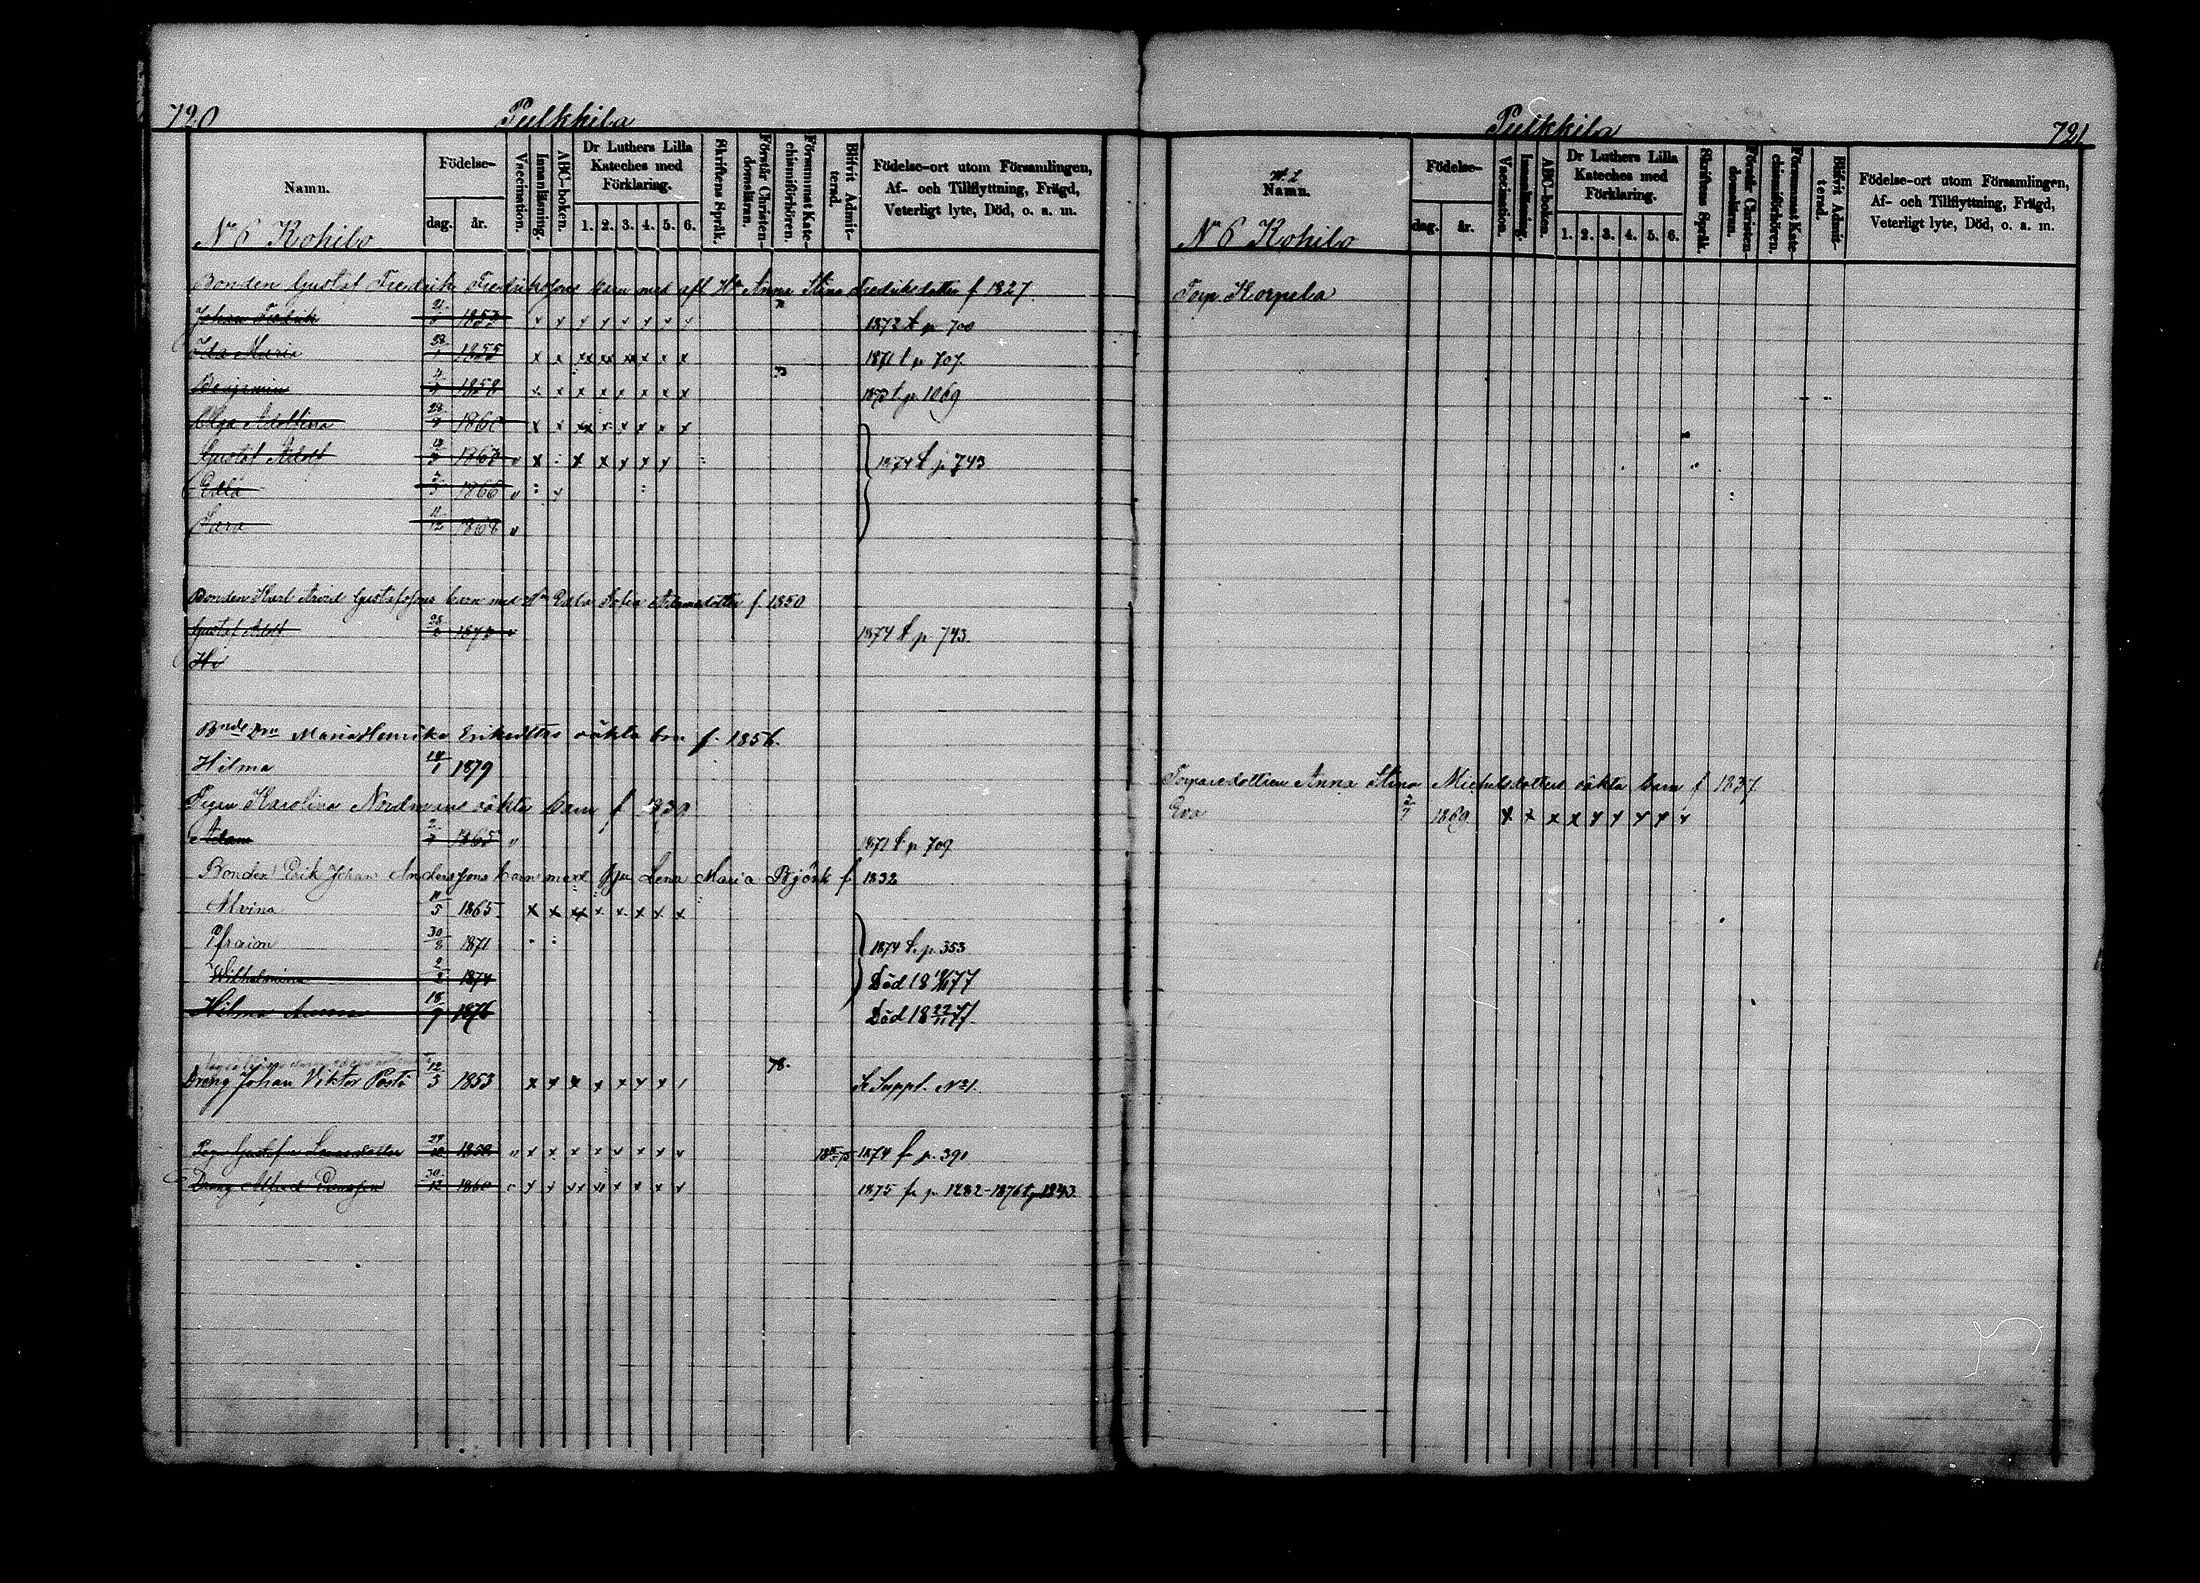 720 Pulkkila
Namn. Födelse- dag. år. Vaccination. Innanläsning. ABC-boken. Dr Luthers Lilla Kateches med Förklaring. 1. 2. 3. 4. 5. 6. Skriftens Språk. Förstår Christendomsläran. Försummat Katechismiförhören. Blifvit Admitterad. Födelse-ort utom Församlingen, Af- och Tillflyttning, Frägd, Veterligt lyte, Död, o. a. m.
No 6 Kohila
Bonden Gustaf Fredrik Fredrikssons barn med afl. Hu Anna Stina Fredriksdotter f 1827
Johan Fredrik 1853 x x x x x x x x 1872 t p 700
Ida Maria 1855 x x xx xx xx x x x 1871 t p 707
Benjamin 1858 x x x x x x x x 1873 t p 1069
Olga Adolfina 28 1860 x x xx x x x x x
Gustaf Adolf 1863 x x x x x x 1874 t p 743
Edla 1866
Sara 11/12 1868
Bonden Karl Arvid Gustafssons barn med Hu Edla Sofia Adamsdotter f. 1850
Gustaf Adolf 1874 t p 743.
Hi
Maria Henrika Eriksdtrs oäkta brn f. 1856.
Hilma 1879
Pigan Karolina Nordmans oäkta barn f 1839
Adam 1865 1871 t p 709
Bonden Erik Johan Anderssons barn med Hu Lena Maria Björk f 1832
Alvina 11/5 1865 x x xx x x x x x
Efraim 30/8 1871 1874 t. p. 353
Wilhelmina 2/2 1874 Död 18 77
Hilma Anna 18/9 1876 Död 18 22/11 77
Dreng Johan Viktor Posti 12/3 1853 x x x x x x x / 78. Se Suppl. No 1.
Pig. Gustafva 27/10 x x x x x x x x 1874 fr p. 390
Dreng Alfred 30/12 1860 x x xx xx x x x x 1875 fr p 1282-1876 t p 1243.
Pulkkila 721.
Namn. Födelse- dag. år. Vaccination. Innanläsning. ABC-boken. Dr Luthers Lilla Kateches med Förklaring. 1. 2. 3. 4. 5. 6. Skriftens Språk. Förstår Christendomsläran. Försummat Katechismiförhören. Blifvit Admitterad. Födelse-ort utom Församlingen, Af- och Tillflyttning, Frägd, Veterligt lyte, Död, o. a. m.
No 6 Kohila
Torp. Korpela
Torparedottren Anna Stina Michelsdotters oäkta barn f 1837
Eva 2/7 1869 x x x x x x x x x